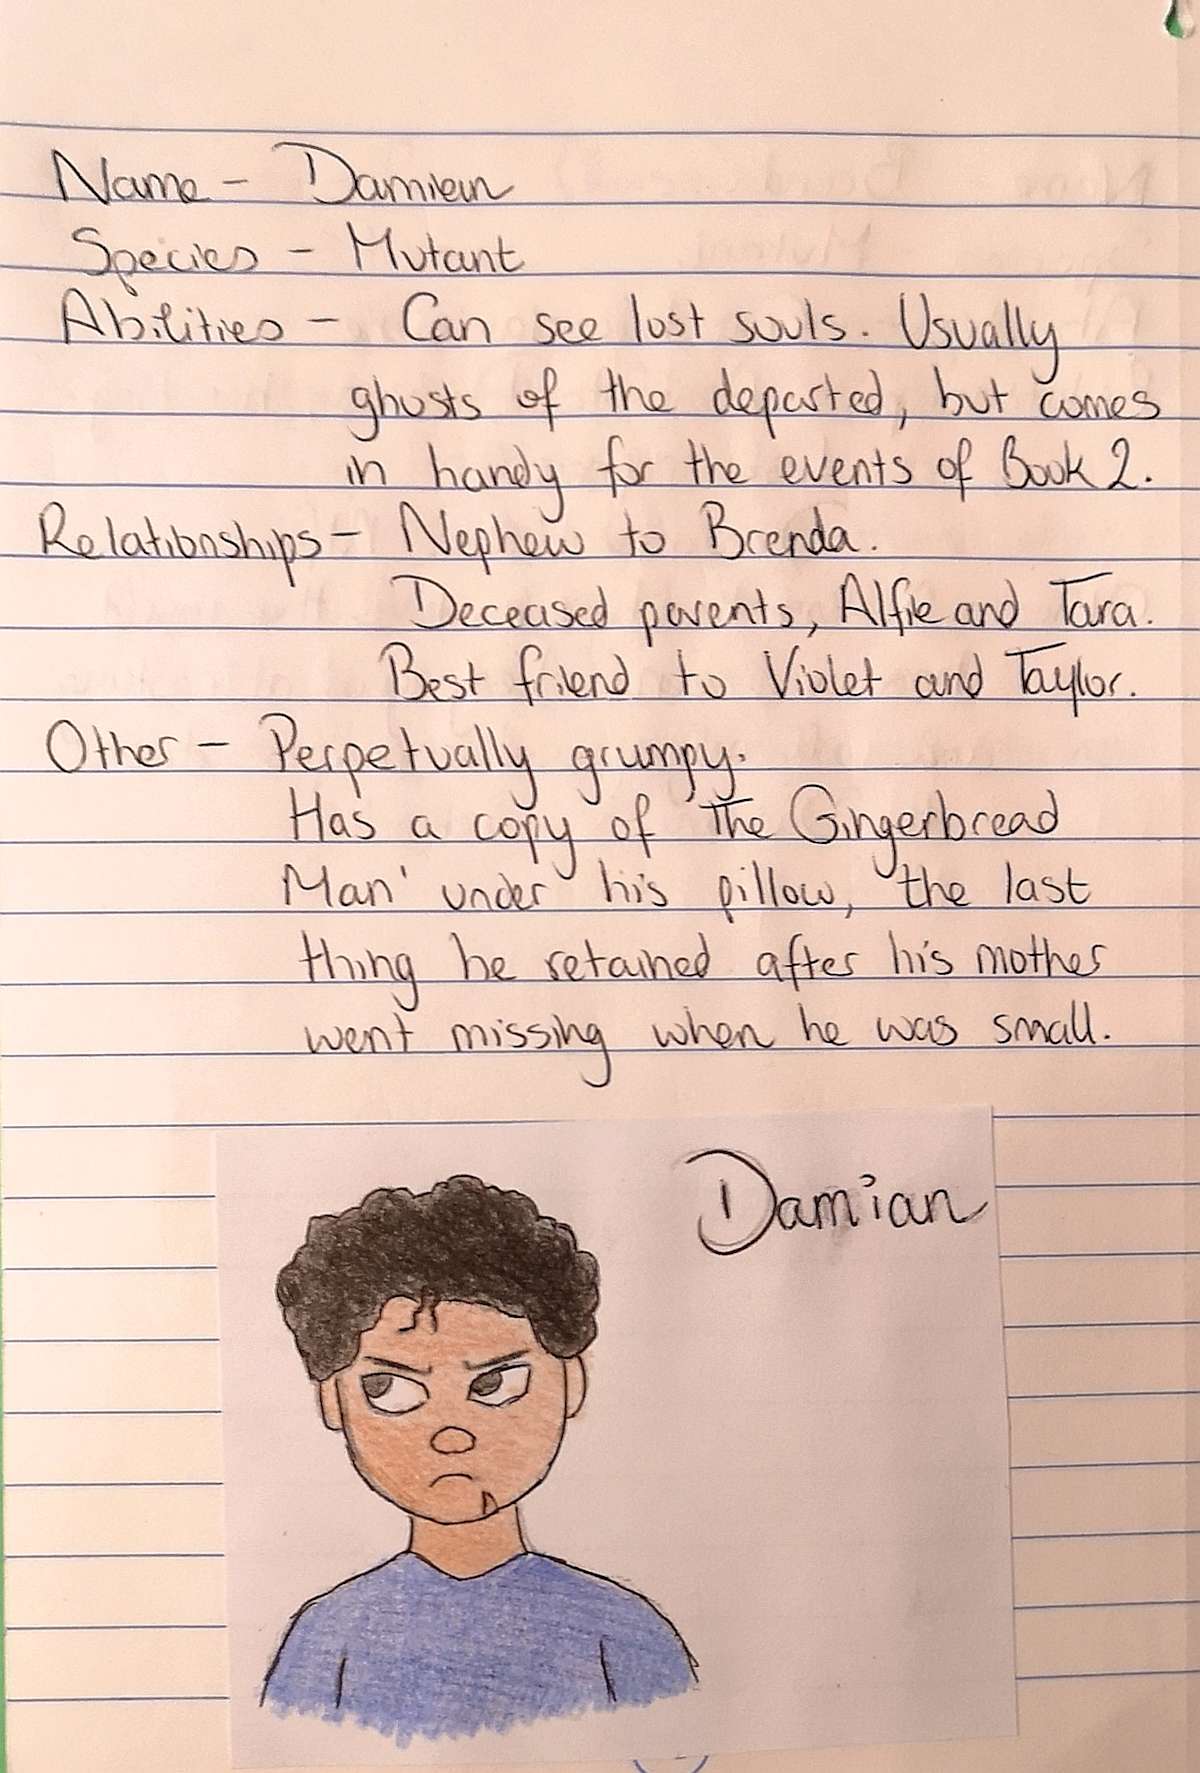 Name - Damien
Species - Mutant
Abilities - Can see lost souls. Usually
ghosts of the departed, but comes
in handy for the events of Book 2.
Relationships - Nephew to Brenda.
Deceased parents, Alfie and Tara.
Best friend to Violet and Taylor.
Other - Perpetually grumpy.
Has a copy of 'The Gingerbread
Man' under his pillow, the last
thing he retained after his mother
went missing when he was small.
Damian